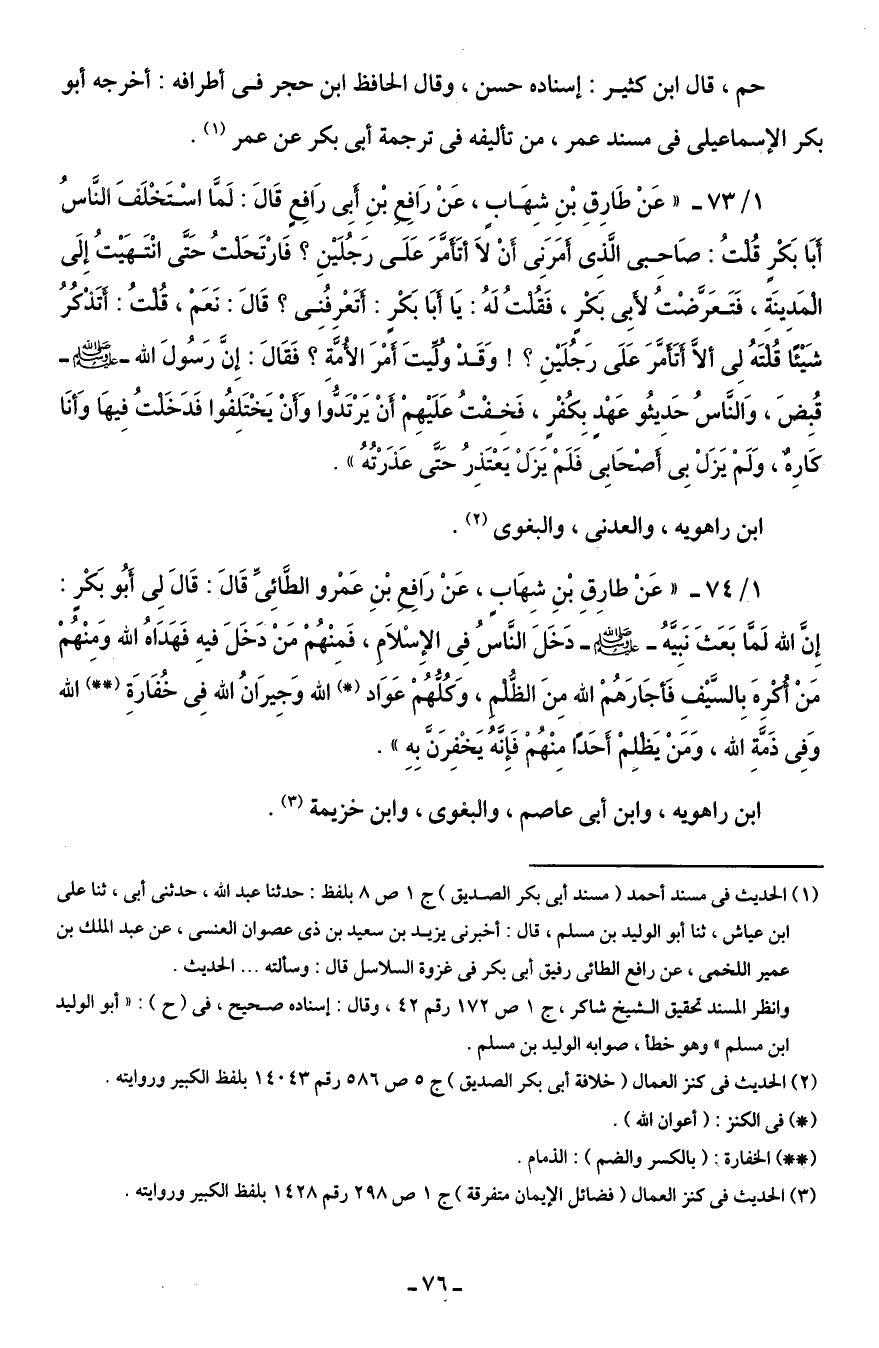 حم ، قال ابن كثير : إسناده حسن ، وقال الحافظ ابن حجر فى أطرافه : أخرجه أبو
بكر الإسماعيلى فى مسند عمر ، من تأليفه فى ترجمة أبى بكر عن عمر (١) .
١/ ٧٣ ـ « عَنْ طَارِقِ بْنِ شِهَابٍ ، عَنْ رَافِعِ بْنِ أَبِى رَافِعٍ قَالَ : لَمَّا اسْتَخْلَفَ النَّاسُ
أَبَا بَكْرٍ قُلْتُ : صَاحِبِى الَّذِى أَمَرَنِى أَنْ لاَ أتَأَمَّرَ عَلَى رَجُلَيْنِ ؟ فَارْتَحَلْتُ حَتَّى انْتَهَيْتُ إِلَى
الْمَدِينَةِ ، فَتَعَرَّضْتُ لأَبِى بَكْرٍ ، فَقُلْتُ لَهُ : يَا أَبَا بَكْرٍ : أَتَعْرِفُنِى ؟ قَالَ : نَعَمْ ، قُلْتُ : أَتَذْكُرُ
شَيْئًا قُلْتَهُ لِى أَلاَّ أَتَأَمَّرَ عَلَى رَجُلَيْنِ ؟ ! وَقَدْ وُلِّيتَ أَمْرَ الأُمَّةِ ؟ فَقَالَ : إِنَّ رَسُولَ الله ـ ﷺ ـ
قُبِضَ ، وَالنَّاسُ حَدِيثُو عَهْدٍ بِكُفْرٍ ، فَخِفْتُ عَلَيْهِمْ أَنْ يَرْتَدُّوا وَأَنْ يَخْتَلِفُوا فَدَخَلْتُ فِيهَا وَأَنَا
كَارِهٌ ، وَلَمْ يَزَلْ بِى أَصْحَابِى فَلَمْ يَزَلْ يَعْتَذِرُ حَتَّى عَذَرْتُهُ » .
ابن راهويه ، والعدنى ، والبغوى (٢) .
١/ ٧٤ ـ « عَنْ طَارِقِ بْنِ شِهَابٍ ، عَنْ رَافِعِ بْنِ عَمْرو الطَّائِىِّ قَالَ : قَالَ لِى أَبُو بَكْرٍ :
إِنَّ الله لَمَّا بَعَثَ نَبِيَّهُ ـ ﷺ ـ دَخَلَ النَّاسُ فِى الإِسْلاَمِ ، فَمِنْهُمْ مَنْ دَخَلَ فِيهِ فَهَدَاهُ الله وَمِنْهُمْ
مَنْ أُكْرِهَ بِالسَّيْفِ فَأَجَارَهُمْ الله مِنَ الظُّلْمِ ، وَكُلُّهُمْ عَوَاد (*) الله وَجِيرَانُ الله فِى خُفَارَةِ (**) الله
وَفِى ذِمَّةِ الله ، وَمَنْ يَظْلِمْ أَحَدًا مِنْهُمْ فَإِنَّهُ يَخْفِرَنَّ بِهِ » .
ابن راهويه ، وابن أبى عاصم ، والبغوى ، وابن خزيمة (٣) .
(١) الحديث فى مسند أحمد ( مسند أبى بكر الصديق ) ج ١ ص ٨ بلفظ : حدثنا عبد الله ، حدثنى أبى ، ثنا على
ابن عياش ، ثنا أبو الوليد بن مسلم ، قال : أخبرنى يزيد بن سعيد بن ذى عصوان العنسى ، عن عبد الملك بن
عمير اللخمى ، عن رافع الطائى رفيق أبى بكر فى غزوة السلاسل قال : وسألته ... الحديث .
وانظر المسند تحقيق الشيخ شاكر ، ج ١ ص ١٧٢ رقم ٤٢ ، وقال : إسناده صحيح ، فى ( ح ) : « أبو الوليد
ابن مسلم » وهو خطأ ، صوابه الوليد بن مسلم .
(٢) الحديث فى كنز العمال ( خلافة أبى بكر الصديق ) ج ٥ ص ٥٨٦ رقم ١٤٠٤٣ بلفظ الكبير وروايته .
(*) فى الكنز : ( أعوان الله ) .
(**) الخفارة : ( بالكسر والضم ) : الذمام .
(٣) الحديث فى كنز العمال ( فضائل الإيمان متفرقة ) ج ١ ص ٢٩٨ رقم ١٤٢٨ بلفظ الكبير وروايته .
ـ ٧٦ ـ